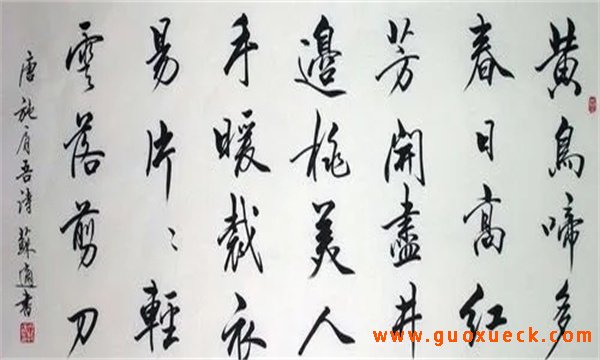 黄鳥啼多
春日高紅
芳開盡井
邊桃美人
手暖裁衣
易片〻輕
雲落剪刀
唐施肩吾诗 蘇適書
www.guoxueck.com